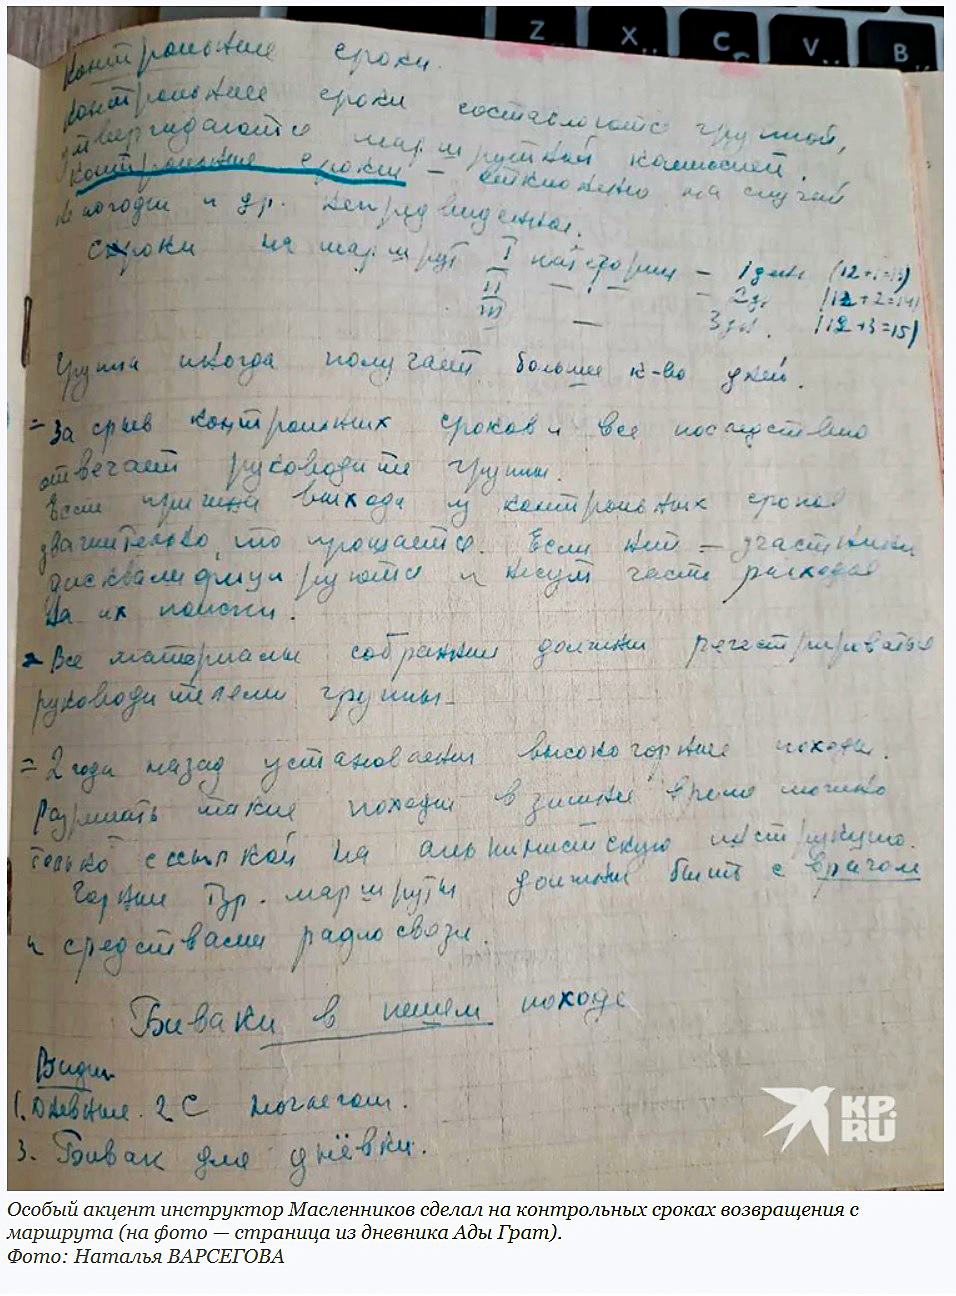 Z X C V B
Контрольные сроки.
Контрольные сроки составляются группой,
утверждаются маршрутной комиссией.
Контрольные сроки – отложено на случай
непогоды и др. непредвиденно.
Сроки на маршрут I категории – 1 день (12+1=13)
II – " – – 2 дн. (12+2=14)
III — 3 дн. (12+3=15)
Группа иногда получает больше к-во дней.
= За срыв контрольных сроков и все последствия
отвечает руководите группы.
Если причина выхода из контрольных сроков
уважительно, то прощается. Если нет – участники
дисквалифицируются и несут часть расходов
на их поиски.
= Все материалы собранные должны регестрироваться
руководителем группы.
= 2 года назад установлены высокогорные походы.
Разрешать такие походы в зимнее время можно
только с ссылкой на альпинистскую инструкцию.
Горные маршруты должны быть с врачом
и средствами радиосвязи.
Биваки в пешем походе
Виды
1. Дневные. 2 С ночлегом.
3. Бивак для днёвки.
KP.RU
Особый акцент инструктор Масленников сделал на контрольных сроках возвращения с
маршрута (на фото — страница из дневника Ады Грат).
Фото: Наталья ВАРСЕГОВА